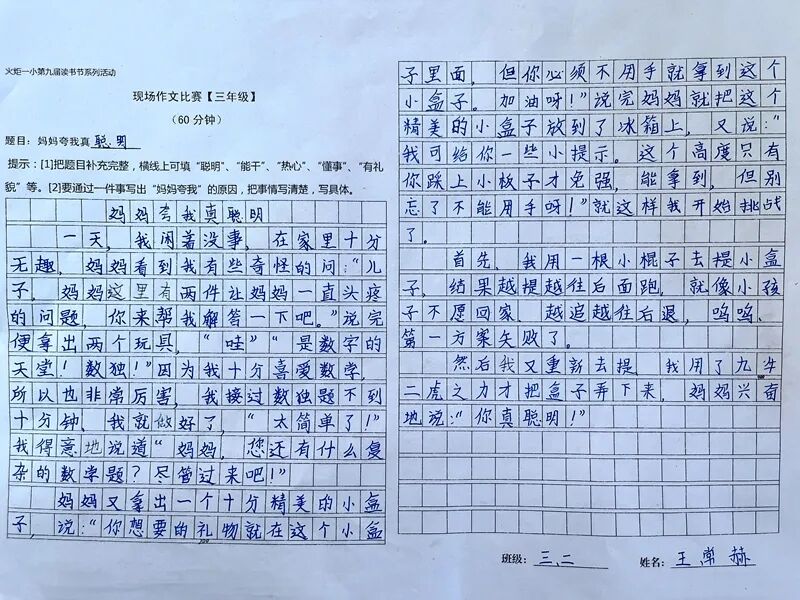 火炬一小第九届读书节系列活动
现场作文比赛【三年级】
（60分钟）
题目：妈妈夸我真聪明
提示：[1]把题目补充完整，横线上可填“聪明”、“能干”、“热心”、“懂事”、“有礼
貌”等。[2]要通过一件事写出“妈妈夸我”的原因，把事情写清楚，写具体。
妈妈夸我真聪明
一天，我闲着没事，在家里十分
无趣，妈妈看到我有些奇怪的问：“儿
子，妈妈这里有两件让妈妈一直头疼
的问题，你来帮我解答一下吧。”说完
便拿出两个玩具，“哇”“是数字的
天堂！数独！”因为我十分喜爱数学，
所以也非常厉害，我接过数独题不到
十分钟、我就做好了，“太简单了！”
我得意地说道“妈妈，您还有什么复
杂的数学题？尽管过来吧！”
妈妈又拿出一个十分精美的小盒
子，说：“你想要的礼物就在这个小盒
子里面，但你必须不用手就拿到这个
小盒子。加油呀！”说完妈妈就把这个
精美的小盒子放到了冰箱上，又说：“
我可给你一些小提示。这个高度只有
你踩上小板子才免强，能拿到，但别
忘了不能用手呀！”就这样我开始挑战
了。
首先，我用一根小棍子去提小盒
子，结果越提越住后面跑，就像小孩
子不愿回家、越追越住后退，呜呜、
第一方案失败了。
然后我又重新去提，我用了九牛
二虎之力才把盒子弄下来，妈妈兴奋
地说：“你真聪明！”
班级：三、二
姓名：王常赫